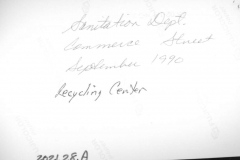 Sanitation Dept.
Commerce Street
September 1990
Recycling Center
2021.28.A